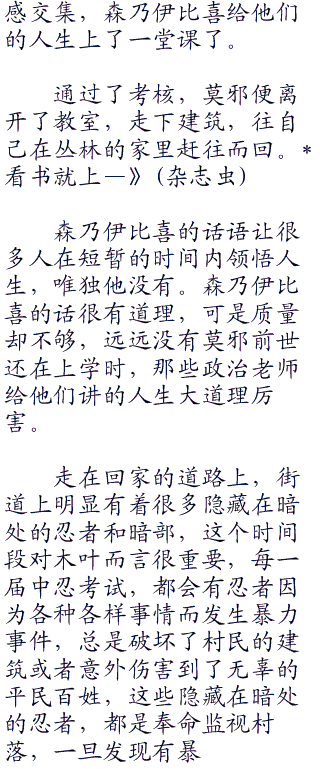 感交集，森乃伊比喜给他们
的人生上了一堂课了。
通过了考核，莫邪便离
开了教室，走下建筑，往自
己在丛林的家里赶往而回。*
看书就上—》(杂志虫)
森乃伊比喜的话语让很
多人在短暂的时间内领悟人
生，唯独他没有。森乃伊比
喜的话很有道理，可是质量
却不够，远远没有莫邪前世
还在上学时，那些政治老师
给他们讲的人生大道理厉
害。
走在回家的道路上，街
道上明显有着很多隐藏在暗
处的忍者和暗部，这个时间
段对木叶而言很重要，每一
届中忍考试，都会有忍者因
为各种各样事情而发生暴力
事件，总是破坏了村民的建
筑或者意外伤害到了无辜的
平民百姓，这些隐藏在暗处
的忍者，都是奉命监视村
落，一旦发现有暴